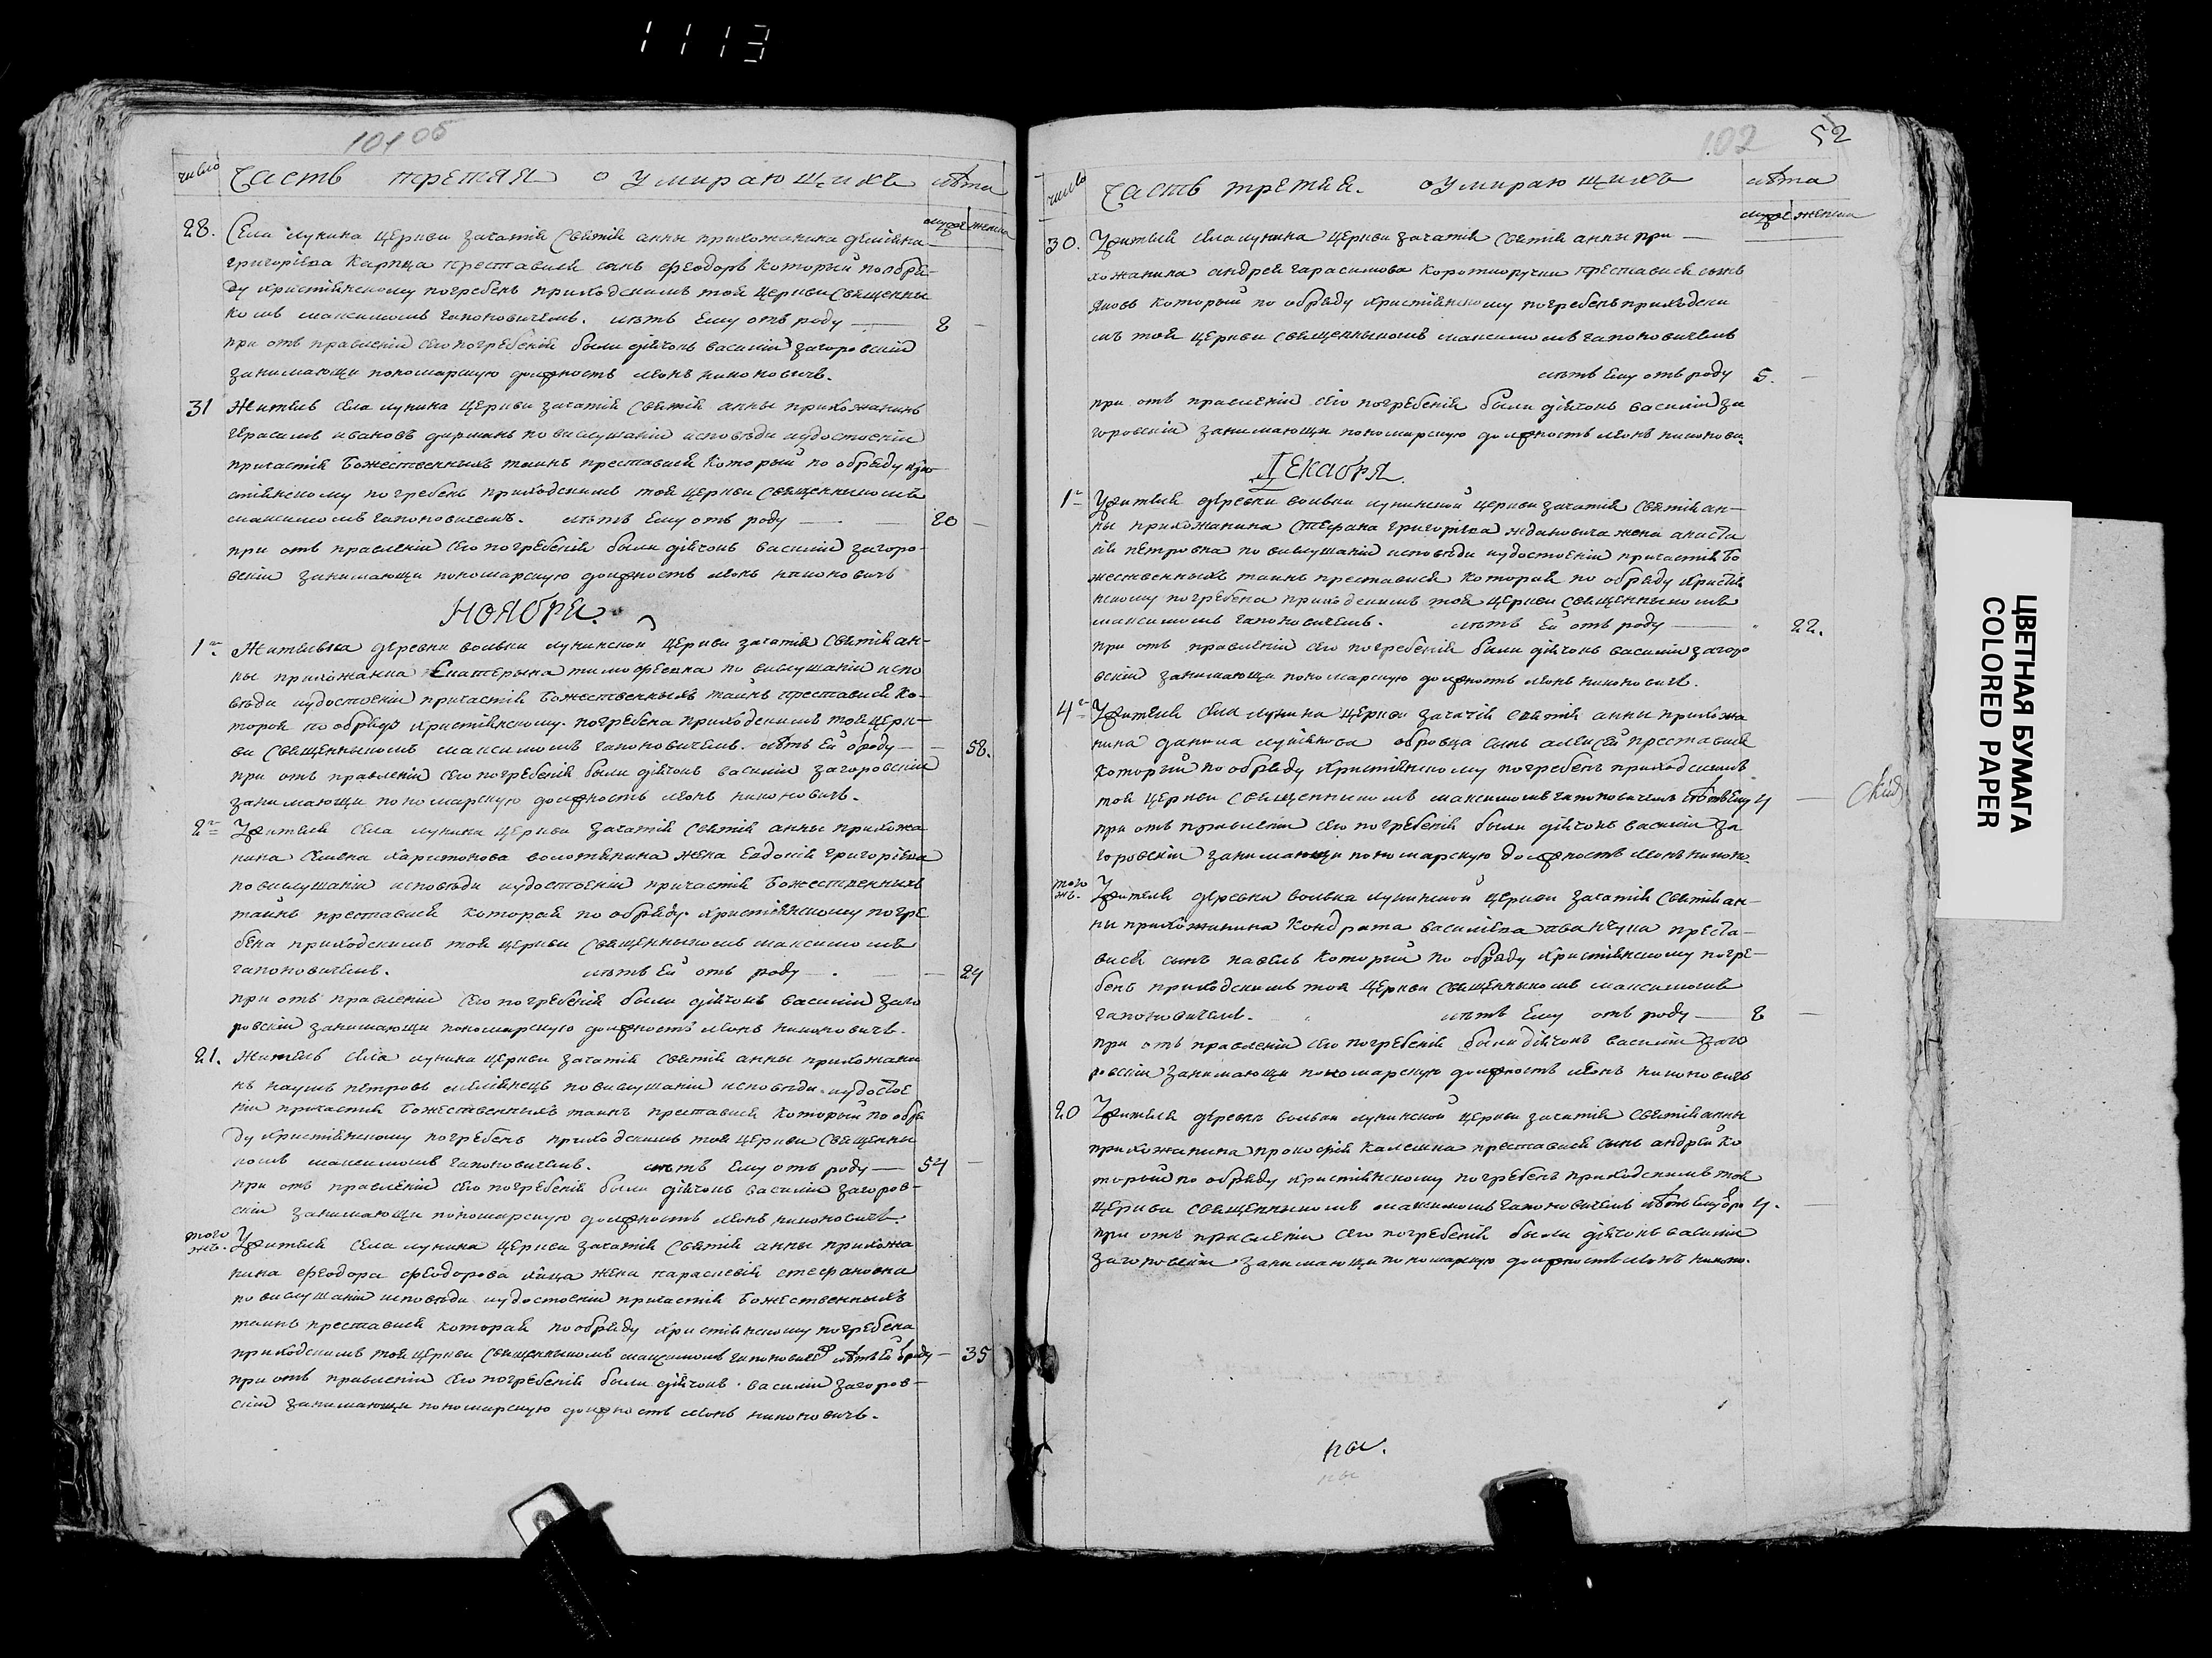 1113
101 об
число Часть третяя о умирающихъ лѣта
мужес женска
28. Села лунина церкви зачатія святія анны прихожанина демїяна
григоріева карпца преставися сынъ феодоръ который по обря-
ду христіянскому погребенъ приходскимъ тоя церкви священни
комъ максимомъ гапоновичемъ. лѣтъ ему отъ роду — 2 —
при отъ правленіи сего погребенія были діячокъ василій загоровскій
занимающи пономарскую должность леонъ никоновичъ.
31 Житель села лунина церкви зачатія святія анны прихожанинъ
герасимъ ивановъ по вислушаніи исповѣди иудостоеніи
причастія божественныхъ таинъ преставися который по обряду хри
стіянскому погребенъ приходскимъ тоя церкви священникомъ
максимомъ гапоновичемъ. лѣтъ ему отъ роду — 20 —
при отъ правленіи сего погребенія были діячокъ василій загоро-
вскій занимающи пономарскую должность леонъ никоновичъ
Ноября.
1го Жителька деревни вольки лунинской церкви зачатія святія ан-
ны прихожанка Екатерына тимофеевна по вислушаніи испо
вѣди иудостоеніи причастія божественныхъ таинъ преставися ко-
торая по обряду христіянскому погребена приходскимъ тоя церк-
ви священникомъ максимомъ гапоновичемъ. лѣтъ ей ѿроду — — 58.
при отъ правленіи сего погребенія были діячокъ василій загоровскій
занимающи пономарскую должность леонъ никоновичъ.
2го Жителя села лунина церкви зачатія святія анны прихожа
нина харитонова жена Евдокія григоріева
по вислушаніи исповѣди иудостоеніи причастія божественныхъ
таинъ преставися которая по обряду христіянскому погре
бена приходскимъ тоя церкви священникомъ максимомъ
гапоновичемъ. лѣтъ ей отъ роду — — 24
при отъ правленіи сего погребенія были діячокъ василій заго
ровскій занимающи пономарскую должность леонъ никоновичъ.
21. Житель села лунина церкви зачатія святія анны прихожани
нъ наумъ петровъ по вислушаніи исповѣди иудостое
ніи причастія божественныхъ таинъ преставися который по обря
ду христіянскому погребенъ приходскимъ тоя церкви священни
комъ максимомъ гапоновичемъ. лѣтъ ему отъ роду — 54 —
при отъ правленіи сего погребенія были діячокъ василій загоров-
скій занимающи пономарскую должность леонъ никоновичъ.
того жъ. Жителя села лунина церкви зачатія святія анны прихожа
нина феодора феодорова жена параскевія стефановна
по вислушаніи исповѣди иудостоеніи причастія божественныхъ
таинъ преставися которая по обряду христіянскому погребена
приходскимъ тоя церкви священникомъ максимомъ гапонович лѣтъ ей ѿроду — 35
при отъ правленіи сего погребенія были діячокъ василій загоров-
скій занимающи пономарскую должность леонъ никоновичъ.
102 52
число Часть третяя. о умирающихъ лѣта
мужес женска
30. Жителя села лунина церкви зачатія святія анны при —
хожанина андрея гарасимова коротноручки преставися сынъ
яковъ который по обряду христіянскому погребенъ приходски
мъ тоя церкви священникомъ максимомъ гапоновичемъ
лѣтъ ему отъ роду 5. —
при отъ правленіи сего погребенія были діячокъ василій за
горовскій занимающи пономарскую должность леонъ никонови
Декабря.
1го Жителя деревни вольки лунинской церкви зачатія святія ан-
ны прихожанина стефана григоріева ждановича жена анаста
сія петровна по вислушаніи исповѣди иудостоеніи причастія бо
жественныхъ таинъ преставися которая по обряду христія
нскому погребена приходскимъ тоя церкви священникомъ
максимомъ гапоновичемъ. лѣтъ ей отъ роду — 22.
при отъ правленіи сего погребенія были діячокъ василій загоро
вскій занимающи пономарскую должность леонъ никоновичъ.
4го Жителя села лунина церкви зачатія святія анны прихожа
нина данила лукіянова обровца сынъ алексей преставися
который по обряду христіянскому погребенъ приходскимъ
тоя церкви священникомъ максимомъ гапоновичемъ лѣтъ ему 4 —
при отъ правленіи сего погребенія были діячокъ василій за
горовскій занимающи пономарскую должность леонъ никоно.
того жъ. Жителя деревни волька лунинской церкви зачатія святія ан-
ны прихожанина кондрата василіева преста-
вися сынъ павелъ который по обряду христіянскому погре-
бенъ приходскимъ тоя церкви священникомъ максимомъ
гапоновичемъ. лѣтъ ему отъ роду — 2 —
при отъ правленіи сего погребенія были діячокъ василій заго
ровскій занимающи пономарскую должность леонъ никоновичъ
20 Жителя деревнѣ вольки лунинской церкви зачатія святія анны
прихожанина прокофія преставися сынъ андрей ко
торый по обряду христіянскому погребенъ приходскимъ тоя
церкви священникомъ максимомъ гапоновичемъ лѣтъ ему ѿро 4. —
при отъ правленіи сего погребенія были діячокъ василій
загоровскій занимающи пономарскую должность леонъ никоно.
ЦВЕТНАЯ БУМАГА
COLORED PAPER